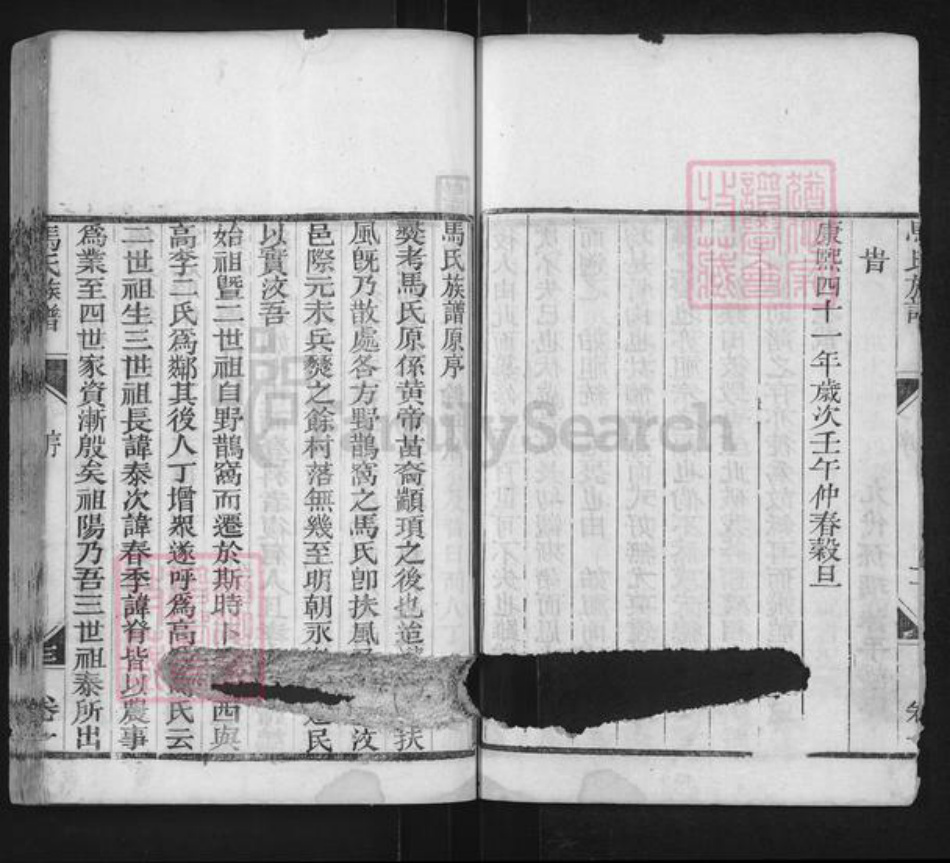 昔
康熙四十一年歲次壬午仲春穀旦
馬氏族譜原序
爰考馬氏原係黃帝苗裔顓頊之後也迨 扶
風既乃散處各方野鵲窩之馬氏卽扶風 汶
邑際元末兵燹之餘村落無幾至明朝永 民
以實汶吾
始祖暨二世祖自野鵲窩而遷於斯時卜 西與
高李二氏爲鄰其後人丁增衆遂呼爲高 氏云
二世祖生三世祖長諱泰次諱春季諱脊皆以農事
爲業至四世家資漸殷矣祖陽乃吾三世祖泰所出
馬氏族譜
序
三
卷一
FamilySearch